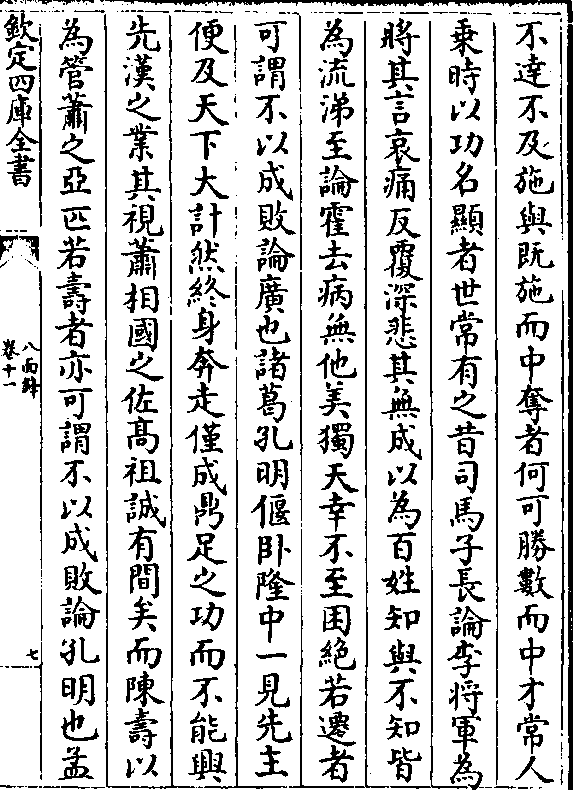 不達不及施與既施而中奪者何可勝數而中才常人
乗時以功名顯者世常有之昔司馬子長論李将軍為
將其言哀痛反覆深悲其無成以為百姓知與不知皆
為流涕至論霍去病無他美獨天幸不至困絶若遷者
可謂不以成敗論廣也諸葛孔明偃卧隆中一見先主
便及天下大計然終身奔走僅成鼎足之功而不能興
先漢之業其視蕭相國之佐髙祖誠有間矣而陳壽以
為管蕭之亞匹若壽者亦可謂不以成敗論孔明也孟
欽定四庫全書
八面鋒
卷十一
七